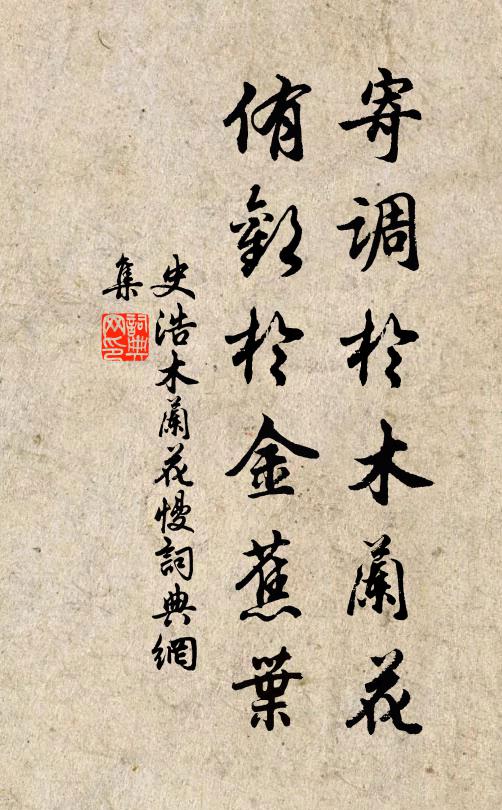 寄調於木蘭花
侑歡於金蕉葉
史浩木蘭花慢詞典網
集
詞典网印